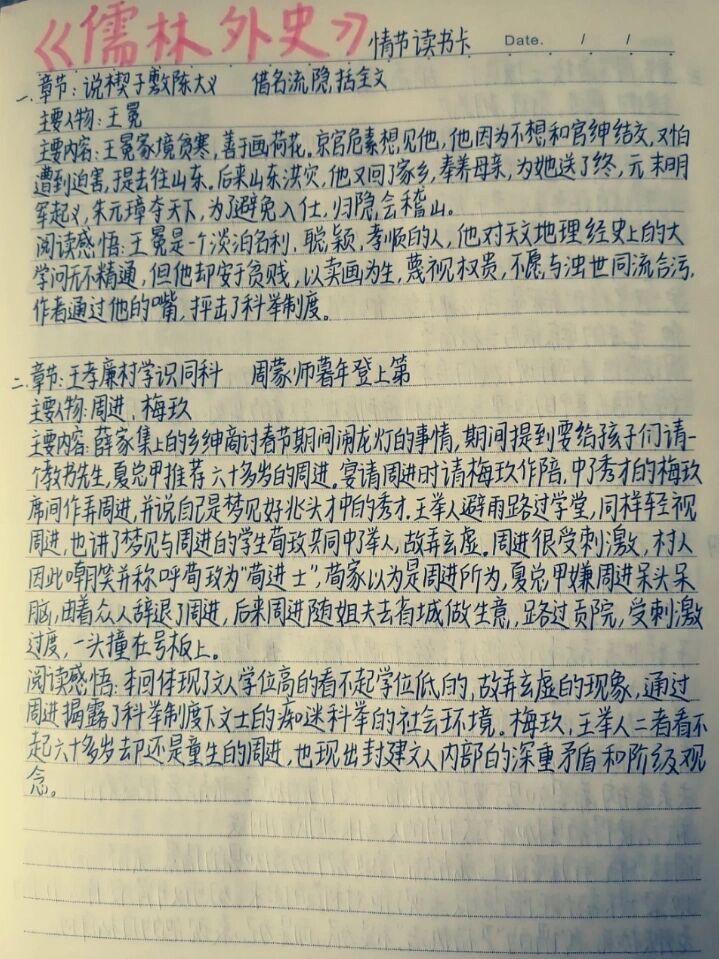 《儒林外史》情节读书卡 Date. / /
一.章节:说楔子敷陈大义 借名流隐括全文
主要人物:王冕
主要内容:王冕家境贫寒,善于画荷花。京官危素想见他,他因为不想和官绅结交,又怕
遭到迫害,于是去往山东。后来山东洪灾,他又回了家乡,奉养母亲,为她送了终,元末明
军起义,朱元璋夺天下,为了避免入仕,归隐会稽山。
阅读感悟:王冕是一个淡泊名利、聪颖,孝顺的人,他对天文地理经史上的大
学问无不精通,但他却安于贫贱,以卖画为生,蔑视权贵,不愿与浊世同流合污,
作者通过他的嘴,抨击了科举制度。
二.章节:王孝廉村学识同科 周蒙师暮年登上第
主要人物:周进、梅玖
主要内容:薛家集上的乡绅商讨春节期间闹龙灯的事情,期间提到要给孩子们请一
个教书先生,夏总甲推荐六十多岁的周进。宴请周进时请梅玖作陪,中了秀才的梅玖
席间作弄周进,并说自己是梦见好兆头才中的秀才,王举人避雨路过学堂,同样轻视
周进,也讲了梦见与周进的学生荀玫共同中了举人,故弄玄虚。周进很受刺激,村人
因此嘲笑并称呼荀玫为"荀进士",荀家以为是周进所为,夏总甲嫌周进呆头呆
脑,由着众人辞退了周进,后来周进随姐夫去省城做生意,路过贡院,受刺激
过度,一头撞在号板上。
阅读感悟:本回体现了文人学位高的看不起学位低的,故弄玄虚的现象,通过
周进揭露了科举制度下文士的痴迷科举的社会环境。梅玖,王举人二者看不
起六十多岁却还是童生的周进,也现出封建文人内部的深重矛盾和阶级观
念。